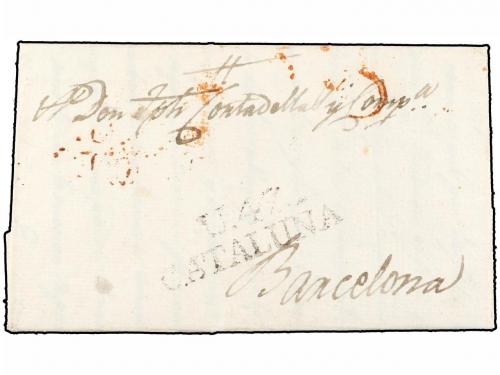 A Don Jph Fontadellas y Comp.a
CATALUÑA
Barcelona